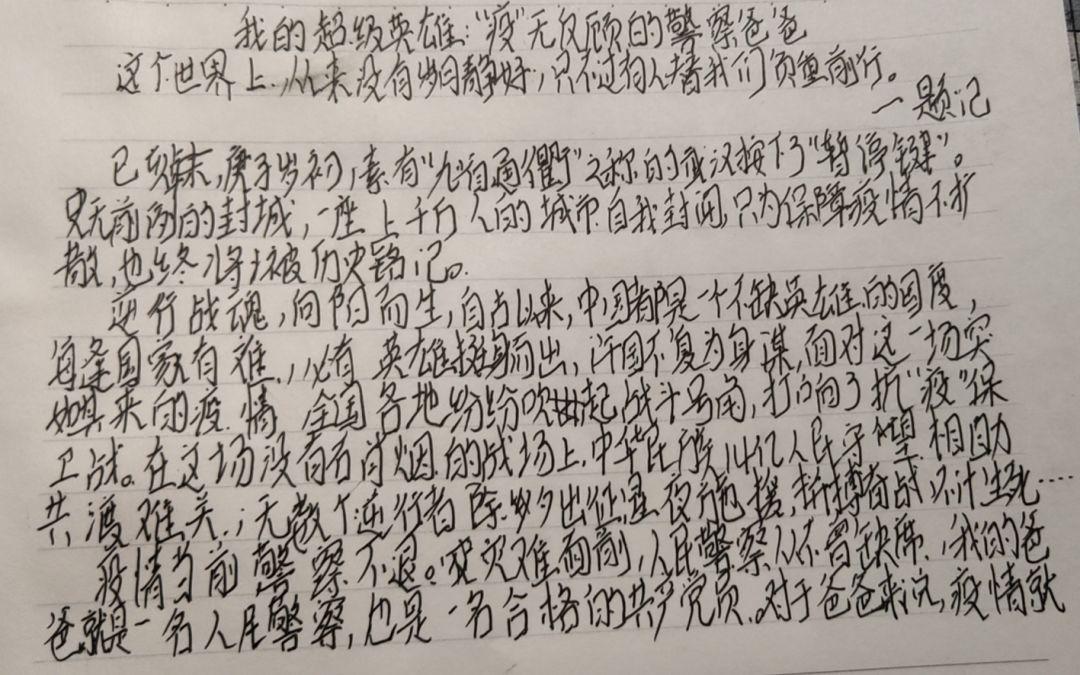 我的超级英雄:“疫”无反顾的警察爸爸
这个世界上,从来没有岁月静好,只不过有人替我们负重前行。
一题记
已亥末,庚子岁初,素有“九省通衢”之称的武汉按下了“暂停键”。
史无前例的封城,一座上千万人的城市自我封闭,只为保障疫情不扩
散,也终将被历史铭记。
逆行战魂,向阳而生,自古以来,中国都是一个不缺英雄的国度,
每逢国家有难,必有英雄挺身而出,许国不复为身谋,面对这一场突
如其来的疫情,全国各地纷纷吹起战斗号角,打响了抗“疫”保
卫战。在这场没有硝烟的战场上,中华民族14亿人民守望相助
共渡难关,无数个逆行者除夕出征,星夜驰援,拼搏奋战,不计生死……
疫情当前警察不退。灾难面前,人民警察从不曾缺席,我的爸
爸就是一名人民警察,也是一名合格的共产党员。对于爸爸来说,疫情就